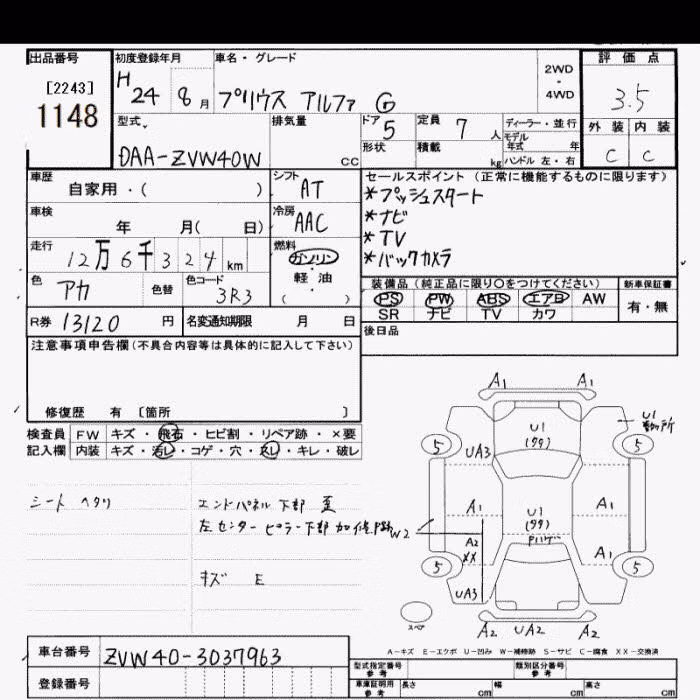 出品番号 初度登録年月 車名・グレード 評価点
[2243]
1148
H 24 8月 プリウス アルファ G
2WD
・
4WD
3.5
型式 排気量 ドア 5 定員 7人 ディーラー・並行 外装 内装
モデル
年式 年
形状 積載 kg ハンドル 左・右
DAA-ZVW40W cc C C
車歴 シフト セールスポイント (正常に機能するものに限ります)
自家用・( ) AT
*プッシュスタート
*ナビ
*TV
*バックカメラ
車検 冷房
年 月( 日) AAC
走行 燃料
12万6千324km ガソリン
・
軽油
( )
色 アカ 色替 色コード 3R3
装備品 (純正品に限り〇をつけてください) 新車保証書
PS PW ABS エアB AW 有・無
SR ナビ TV カワ
R券 13120 円 名変通知期限 月 日
後日品
注意事項申告欄(不具合内容等は具体的に記入して下さい)
修復歴 有 〔箇所 〕
検査員 FW キズ・飛石・ヒビ割・リペア跡・×要
記入欄 内装 キズ・汚レ・コゲ・穴・スレ・キレ・破レ
シート ヘタリ
エンドパネル 下部 歪
左センターピラー下部 加修跡
キズ E
A1 A1
U1
5 U1 (99) 5
UA3
A1 U1 (99) A1
W2 A2 XX Pハゲ A1
5 5
UA3
スペア A2 UA2 A2
A-キズ E-エクボ U-凹み W-補修跡 S-サビ C-腐食 XX-交換済
車台番号 ZVW40-3037963
登録番号
型式指定番号 参考 類別区分番号 参考
車庫証明用 参考 長さ cm 幅 cm 高さ cm